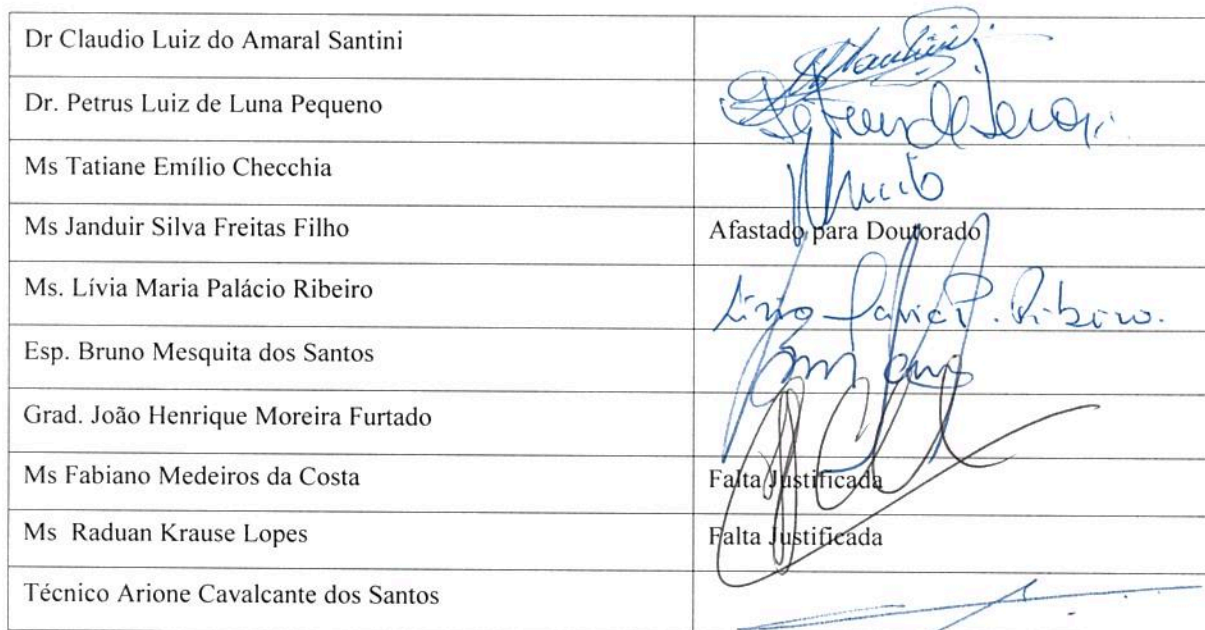 Dr Claudio Luiz do Amaral Santini
Dr. Petrus Luiz de Luna Pequeno
Ms Tatiane Emílio Checchia
Ms Janduir Silva Freitas Filho Afastado para Doutorado
Ms. Lívia Maria Palácio Ribeiro Lívia Maria P. Ribeiro.
Esp. Bruno Mesquita dos Santos
Grad. João Henrique Moreira Furtado
Ms Fabiano Medeiros da Costa Falta Justificada
Ms Raduan Krause Lopes Falta Justificada
Técnico Arione Cavalcante dos Santos